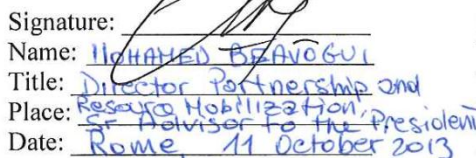 Signature:
Name: MOHAMED BEAVOGUI
Title: Director Partnership and
Place: Resource Mobilization,
Sr Advisor to the President
Date: Rome, 11 October 2013